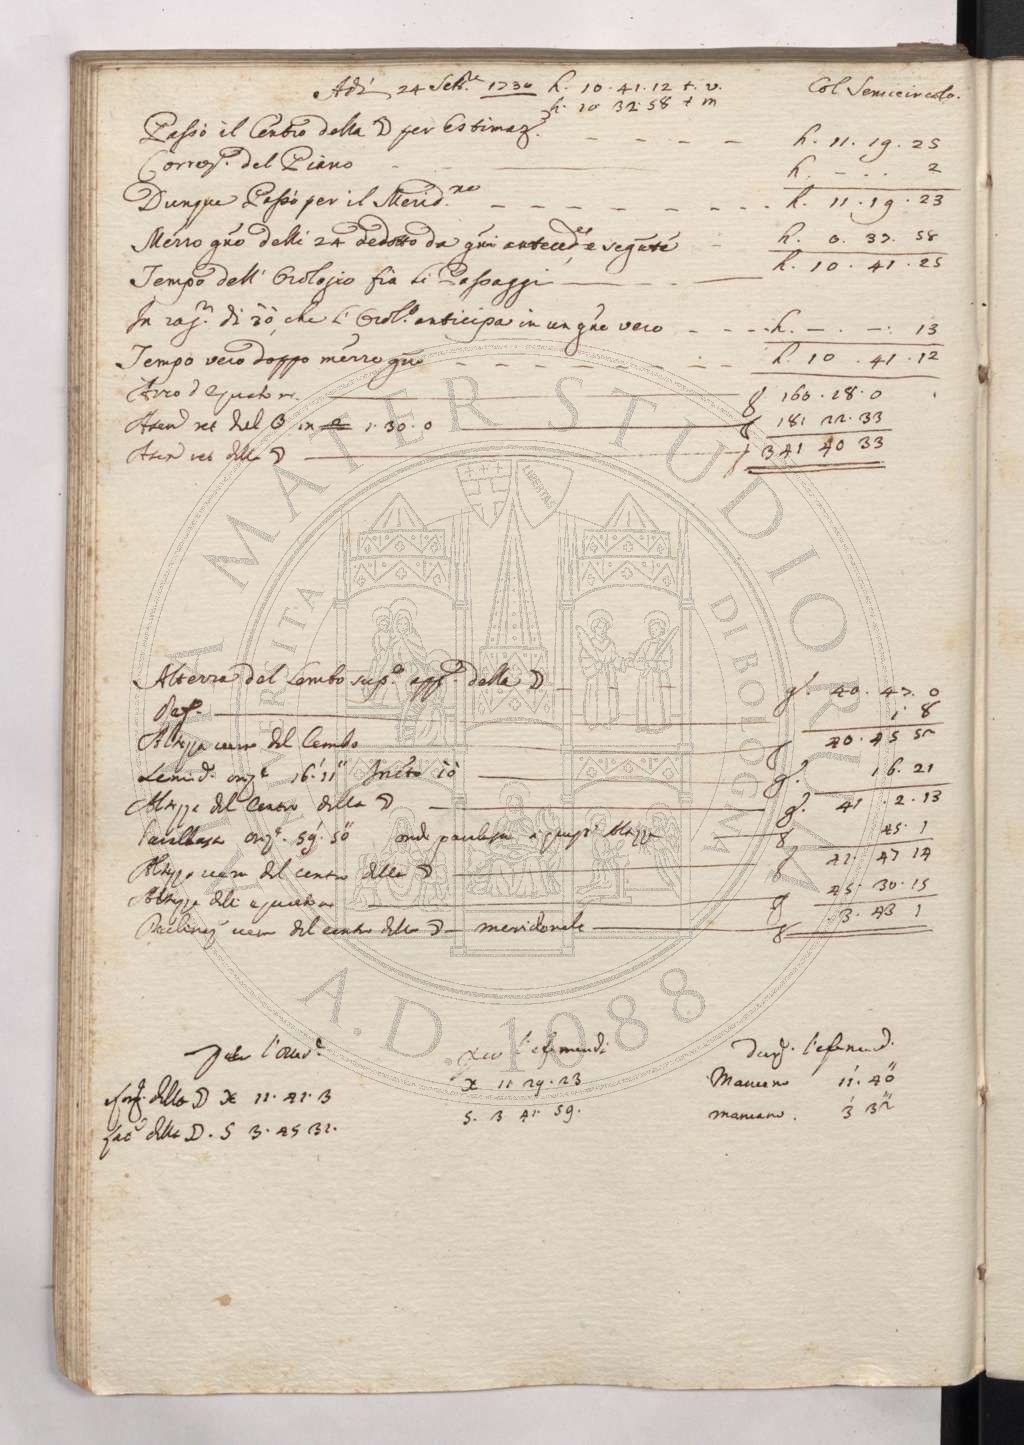 Adi 24 Sett.re 1730 h. 10. 41. 12 t. v.
h. 10 32. 58 t m
Col Semicircolo.
Passò il Centro della ☽ per Estimaz. h. 11. 19. 25
Correz. del Piano h. - . . 2
Dunque Passò per il Merid.no h. 11. 19. 23
Mezzo gno delli 24 dedotto da gni anteced.ti e seguti h. 0. 37. 58
Tempo dell' Orologio fra li Passaggi h. 10. 41. 25
In rag. di 30 che l'Orol.o anticipa in un gno vero h. - . - . 13
Tempo vero doppo mezzo gno h. 10. 41. 12
Arco d'equatore g 160. 18. 0
Asen ret del ☉ in ♎ 1. 30. 0 g 181 22. 33
Asen ret della ☽ g 341 40 33
Altezza del Lembo sup.o app.e della ☽ g. 40. 47. 0
1. 8
Altezza vera del Lembo g 40. 45 52
Semid. oriz. 16. 11" 16. 21
Altezza del Centro della ☽ g. 41. 2. 13
Parallasse oriz. 59. 50" onde parallasse a quest' Altezza 45. 1
Altezza vera del centro della ☽ g 41. 47 14
Altezza dell equatore g 45. 30. 15
Declinaz vera del centro della ☽ meridionale g 3. 43 1
Per l'efemeridi
l'efemerid.
♓ 11. 29. 23
Mancano 11. 40"
della ☽ ♓ 11. 41. 3
S. 3 41. 59.
mancano. 3 32"
della ☽. S 3. 45 31.
ALMA MATER STUDIORUM
UNIVERSITÀ DI BOLOGNA
LIBERTAS
A.D. 1088